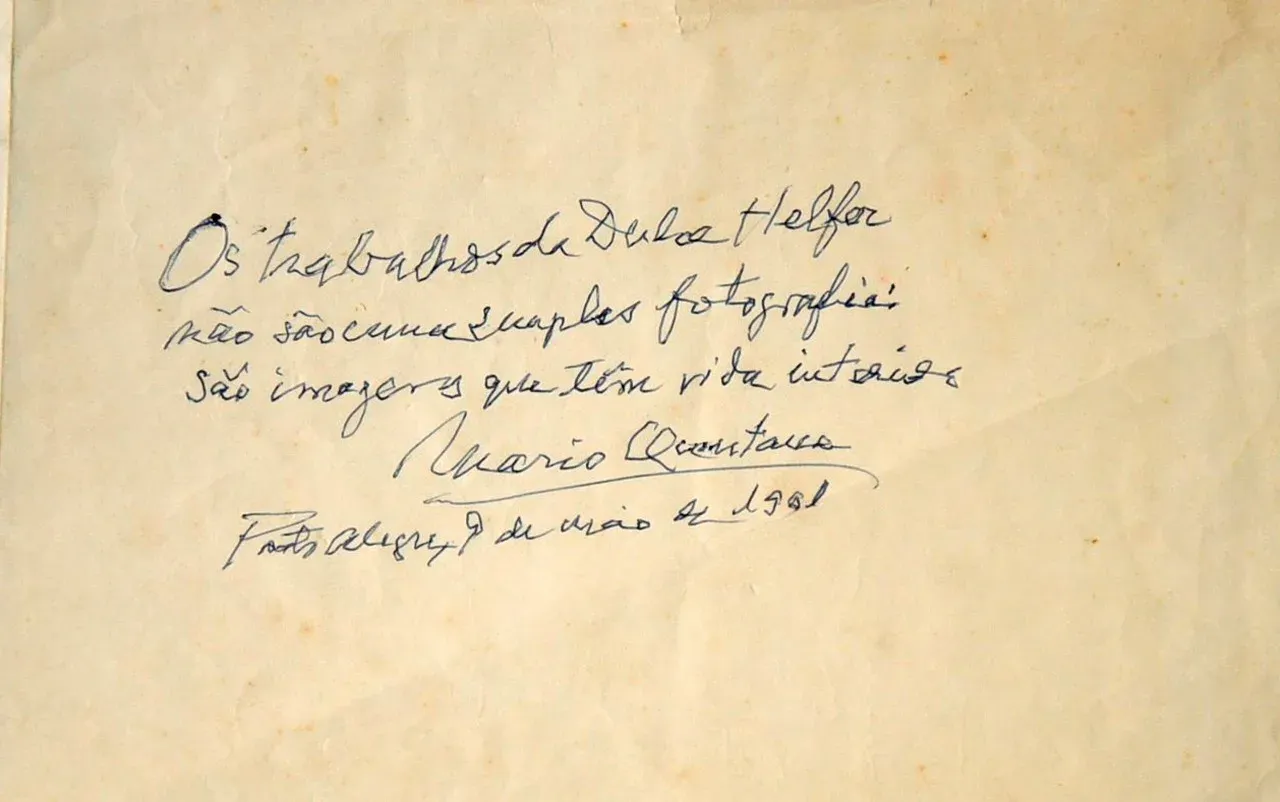 Os trabalhos da Dulce Helfer
não são uma simples fotografia:
são imagens que têm vida interior
Mario Quintana
Porto Alegre, de maio de